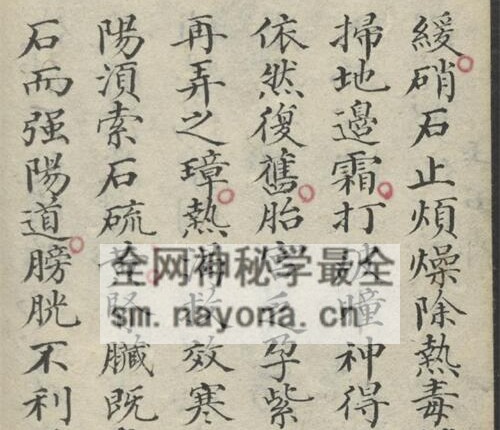 緩硝石止煩燥除熱毒
掃地邊霜打瞳神得
依然復舊胎孕紫
再弄之璋熱效寒
陽湏索石硫黄腎臟既
石而强陽道膀胱不利
全网神秘学最全
sm.nayona.cn